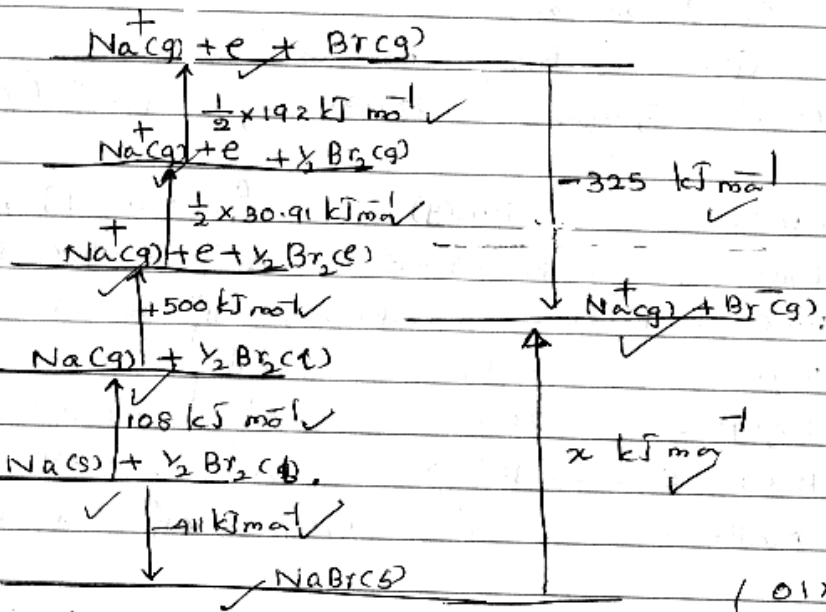 Na⁺(g) + e + Br(g)
½ × 192 kJ mol⁻¹ ✓
Na⁺(g) + e + ½ Br₂(g)
-325 kJ mol⁻¹ ✓
½ × 30.91 kJ mol⁻¹ ✓
Na⁺(g) + e + ½ Br₂(l)
+500 kJ mol⁻¹ ✓
Na⁺(g) + Br⁻(g).
Na(g) + ½ Br₂(l)
108 kJ mol⁻¹ ✓
x kJ mol⁻¹ ✓
Na(s) + ½ Br₂(l).
-411 kJ mol⁻¹ ✓
NaBr(s)
(01)